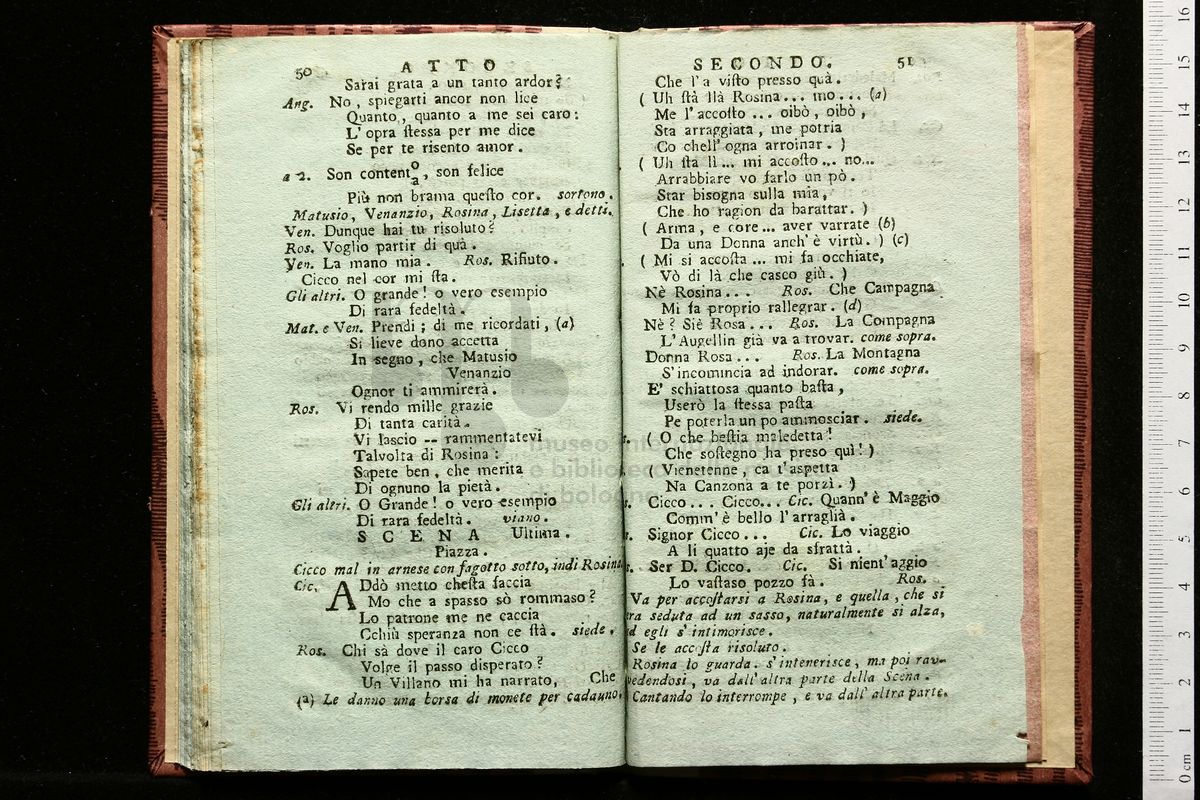 50 ATTO
Sarai grata a un tanto ardor?
Ang. No, spiegarti ancor non lice
Quanto, quanto a me sei caro:
L'opra ſteſſa per me dice
Se per te riſento amor.
a 2. Son contento/a, son felice
Più non brama queſto cor. sortono.
Matusio, Venanzio, Rosina, Lisetta, e detti.
Ven. Dunque hai tu risoluto?
Ros. Voglio partir di quà.
Ven. La mano mia. Ros. Rifiuto.
Cicco nel cor mi ſta.
Gli altri. O grande! o vero esempio
Di rara fedeltà.
Mat. e Ven. Prendi; di me ricordati, (a)
Si lieve dono accetta
In segno, che Matusio
Venanzio
Ognor ti ammirerà.
Ros. Vi rendo mille grazie
Di tanta carità.
Vi lascio -- rammentatevi
Talvolta di Rosina:
Sapete ben, che merita
Di ognuno la pietà.
Gli altri. O Grande! o vero esempio
Di rara fedeltà. viano.
SCENA Ultima.
Piazza.
Cicco mal in arnese con fagotto sotto, indi Rosina
Cic. ADdò metto cheſta faccia
Mo che a spasso sò rommaso?
Lo patrone me ne caccia
Cchiù speranza non ce ſtà. siede.
Ros. Chi sà dove il caro Cicco
Volge il passo disperato?
Un Villano mi ha narrato, Che
(a) Le danno una borsa di monete per cadauno.
SECONDO. 51
Che l'a viſto presso quà.
( Uh ſtà llà Rosina... mo... (a)
Me l'accoſto ... oibò, oibò,
Sta arraggiata, me potria
Co chell'ogna arroinar. )
( Uh ſta lì ... mi accoſto ... no...
Arrabbiare vo farlo un pò.
Star bisogna sulla mia,
Che ho ragion da barattar. )
( Arma, e core... aver varrate (b)
Da una Donna anch'è virtù. ) (c)
( Mi si accoſta ... mi fa occhiate,
Vò di là che casco giù. )
Nè Rosina... Ros. Che Campagna
Mi fa proprio rallegrar. (d)
Nè? Siè Rosa... Ros. La Compagna
L'Augellin già va a trovar. come sopra.
Donna Rosa... Ros. La Montagna
S'incomincia ad indorar. come sopra.
E' schiattosa quanto baſta,
Userò la ſtessa paſta
Pe poterla un po ammosciar. siede.
( O che beſtia maledetta!
Che soſtegno ha preso quì! )
( Vienetenne, ca t'aspetta
Na Canzona a te porzì. )
Cicco... Cicco... Cic. Quann'è Maggio
Comm'è bello l'arraglià.
Signor Cicco... Cic. Lo viaggio
A li quatto aje da sfrattà.
Ser D. Cicco. Cic. Si nient'aggio
Lo vaſtaso pozzo fà. Ros.
Va per accoſtarsi a Rosina, e quella, che si
ra seduta ad un sasso, naturalmente si alza,
d egli s'intimorisce.
Se le accoſta risoluto.
Rosina lo guarda. s'intenerisce, ma poi rav-
vedendosi, va dall'altra parte della Scena.
Cantando lo interrompe, e va dall'altra parte.